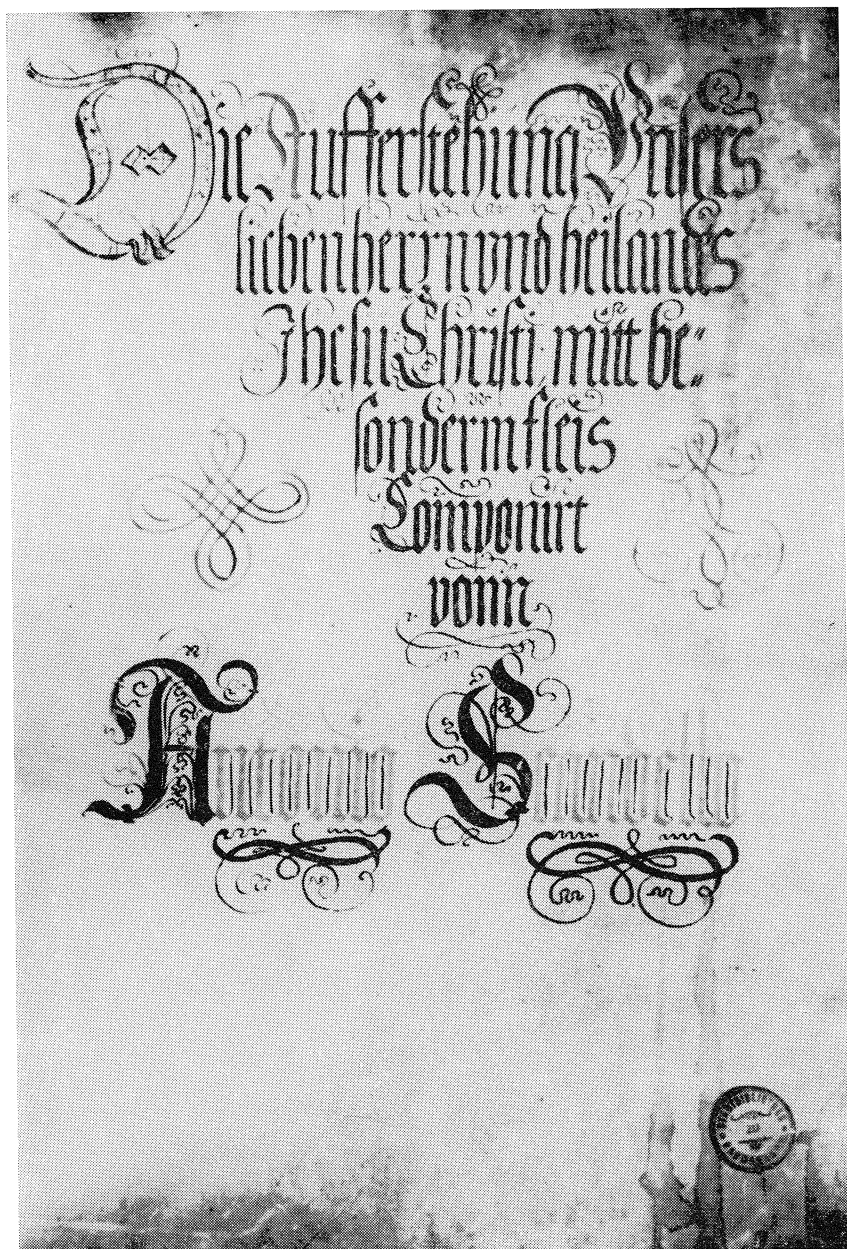 Die Aufferstehung Vnsers
lieben herrn vnd heilandes
Jhesu Christi mitt be:
sonderm fleis
Componirt
vonn
Antonio Scandello